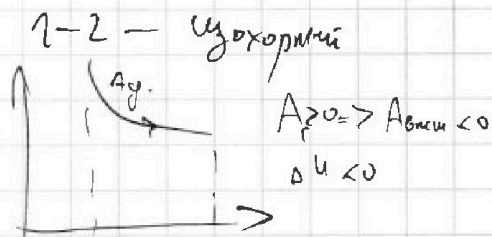 1-2 - изохорный
Ад.
A г ≥ 0 => A внеш < 0
ΔU < 0